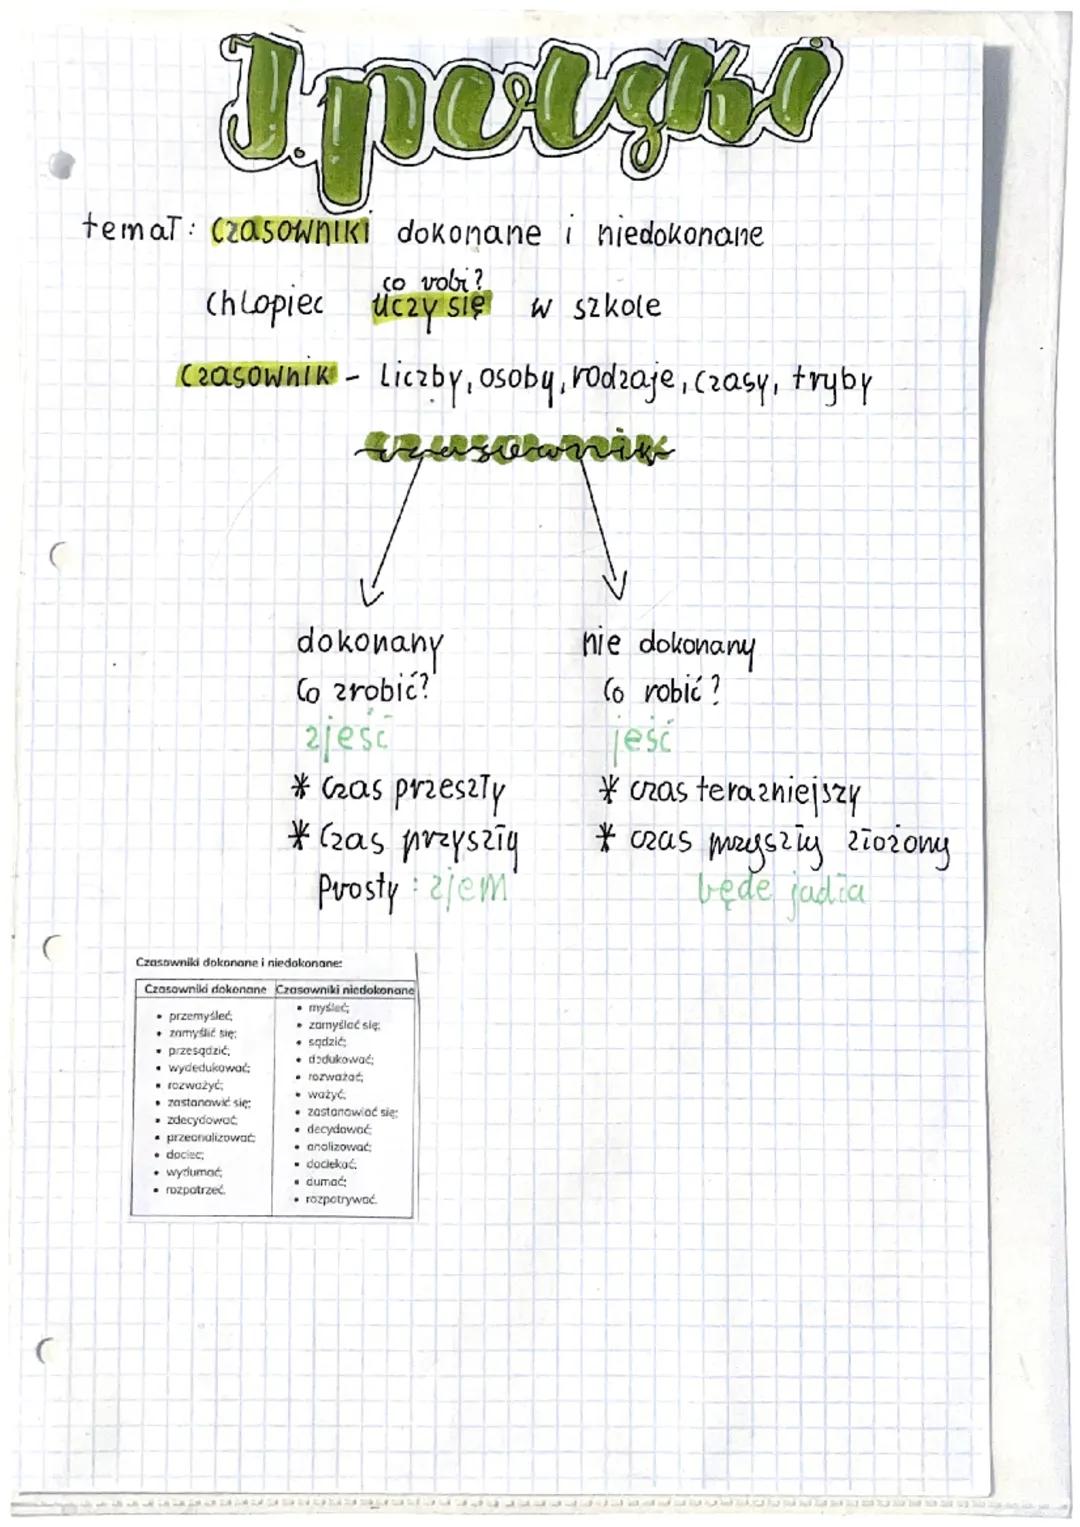 J. polski
temat: Czasowniki dokonane i niedokonane
co robi?
Chłopiec uczy się w szkole
Czasownik - Liczby, osoby, rodzaje, czasy, tryby
czasownik
dokonany
Co zrobić?
zjeść
* Czas przeszły
* Czas przyszły
Prosty : zjem
nie dokonany
Co robić?
jeść
* czas terazniejszy
* czas przyszły złożony
będe jadła
Czasowniki dokonane i niedokonane:
Czasowniki dokonane
• przemyśleć;
• zamyślić się;
• przesądzić;
• wydedukować;
• rozważyć;
• zastanowić się;
• zdecydować;
• przeanalizować;
• dociec;
• wydumać;
• rozpatrzeć.
Czasowniki niedokonane
• myśleć;
• zamyślać się;
• sądzić;
• dedukować;
• rozważać;
• ważyć;
• zastanawiać się;
• decydować;
• analizować;
• dociekać;
• dumać;
• rozpatrywać.